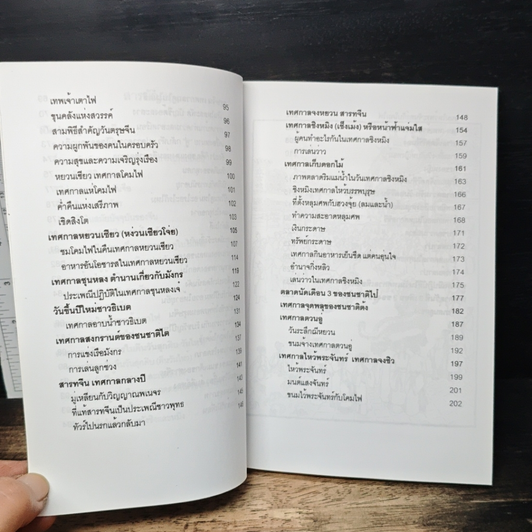 เทพเจ้าเตาไฟ 95
ขุนคลังแห่งสวรรค์ 96
สามพิธีสำคัญวันตรุษจีน 96
ความผูกพันของคนในครอบครัว 98
ความสุขและความเจริญรุ่งเรือง 99
หยวนเซียว เทศกาลโคมไฟ 100
เทศกาลแห่โคมไฟ 101
ค่ำคืนแห่งเสรีภาพ 103
เชิดสิงโต 103
เทศกาลหยวนเซียว (หง่วนเซียวโจ่ย) 105
ชมโคมไฟในคืนเทศกาลหยวนเซียว
อาหารอันโอชารสในเทศกาลหยวนเซียว
เทศกาลชุนหลง ตำนานเกี่ยวกับมังกร 119
ประเพณีปฏิบัติในเทศกาลชุนหลงเจ๋ 122
วันขึ้นปีใหม่ชาวธิเบต 124
เทศกาลอาบน้ำชาวธิเบต 130
เทศกาลสงกรานต์ของชนชาติไต
การแข่งเรือมังกร 139
การเล่นลูกช่วง
สารทจีน เทศกาลกลางปี
มูเหลียนกับวิญญาณพเนจร
ที่แท้สารทจีนเป็นประเพณีชาวพุทธ
ทัวร์ไปนรกแล้วกลับมา
เทศกาลจงหยวน สารทจีน 148
เทศกาลชิงหมิง (เช็งเม้ง) หรือหน้าฟ้าแจ่มใส 154
ผู้คนทำอะไรกันในเทศกาลชิงหมิง 157
การเล่นว่าว 159
เทศกาลเก็บดอกไม้ 161
ภาพตลาดริมแม่น้ำในวันชิงหมิง 163
ชิงหมิงเทศกาลไหว้บรรพบุรุษ 167
ที่ตั้งหลุมศพกับฮวงจุ้ย (ลมและน้ำ) 168
ทำความสะอาดหลุมศพ 169
เงินกระดาษ 171
ทรัพย์กระดาษ 172
เทศกาลกินอาหารเย็นชืด แต่คนอุ่นใจ 173
อำนาจกิ่งหลิว 174
เล่นว่าวในเทศกาลชิงหมิง 175
ตลาดนัดเดือน 3 ของชนชาติไป๋ 177
เทศกาลจุดพลุของชนชาติต้ง 182
เทศกาลตวนอู่ 187
วันระลึกฉีหยวน 189
ขนมจ้างเทศกาลตวนอู่ 192
เทศกาลไหว้พระจันทร์ เทศกาลจงชิว 197
ไหว้พระจันทร์ 199
มนต์แสงจันทร์ 201
ขนมไหว้พระจันทร์กับโคมไฟ 202